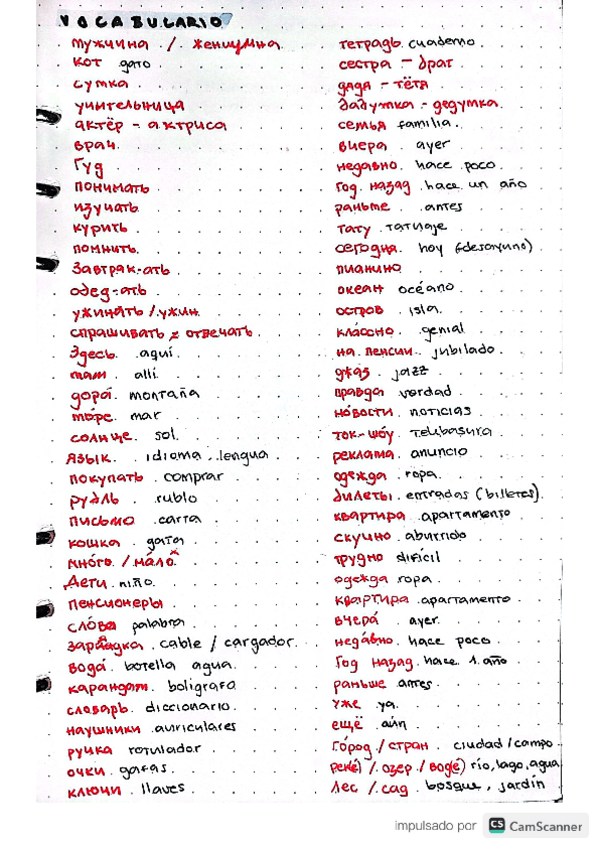 VOCABULARIO
мужчина / женщина
кот gato
сумка
учительница
актёр - актриса
врач
Гуд
понимать
изучать
курить
помнить
Завтрак-ать
обед-ать
ужинать / ужин
спрашивать ≠ отвечать
Здесь aquí
там allí
гора montaña
море mar
солнце sol
язык idioma, lengua
покупать comprar
рубль rublo
письмо carta
кошка gata
много / мало
Дети niño
пенсионеры
слова palabra
зарядка cable / cargador
вода botella agua
карандаш boligrafo
словарь diccionario
наушники auriculares
ручка rotulador
очки gafas
ключи llaves
тетрадь cuaderno
сестра - брат
дядя - тётя
бабушка - дедушка
семья familia
вчера ayer
недавно hace poco
Год назад hace un año
раньше antes
тату tatuaje
сегодня hoy (desayuno)
пианино
океан océano
остров isla
классно genial
на пенсии jubilado
джаз jazz
правда verdad
новости noticias
ток-шоу telebasura
реклама anuncio
одежда ropa
билеты entradas (billetes)
квартира apartamento
скучно aburrido
трудно difícil
одежда ropa
квартира apartamento
вчера ayer
недавно hace poco
Год назад hace 1 año
раньше antes
уже ya
ещё aún
Город / стран ciudad / campo
реке / озер / воде) río, lago, agua
Лес / сад bosque, jardín
impulsado por CS CamScanner